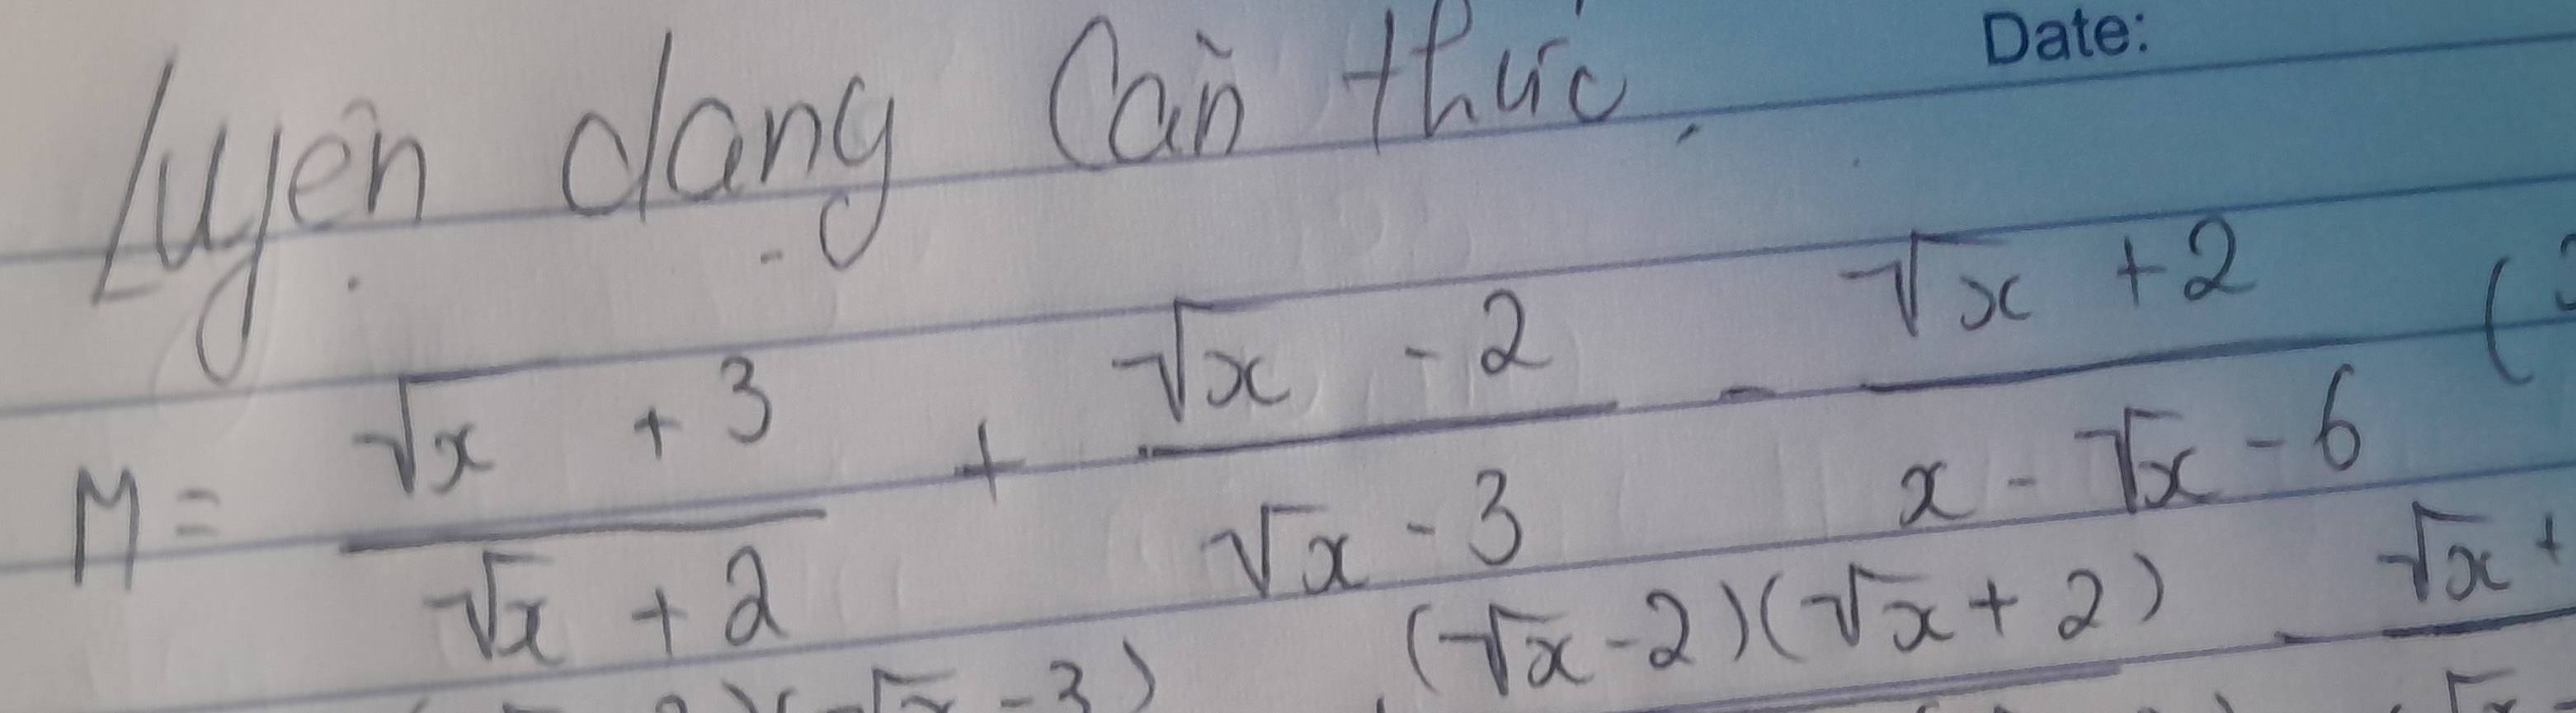 Date:
Luyện dạng Căn thức.
M = \frac{\sqrt{x} + 3}{\sqrt{x} + 2} + \frac{\sqrt{x} - 2}{\sqrt{x} - 3} - \frac{\sqrt{x} + 2}{x - \sqrt{x} - 6} (
- 3) (\sqrt{x} - 2)(\sqrt{x} + 2) - \sqrt{x} +